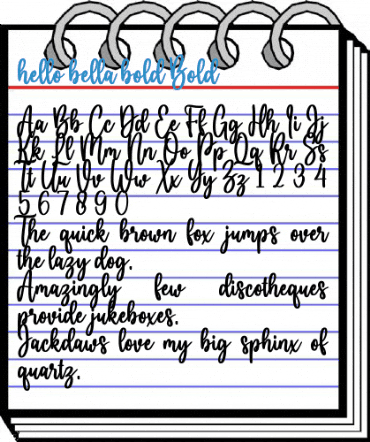 hello bella bold Bold
Aa Bb Cc Dd Ee Ff Gg Hh Ii Jj
Kk Ll Mm Nn Oo Pp Qq Rr Ss
Tt Uu Vv Ww Xx Yy Zz 1 2 3 4
5 6 7 8 9 0
The quick brown fox jumps over
the lazy dog.
Amazingly few discotheques
provide jukeboxes.
Jackdaws love my big sphinx of
quartz.